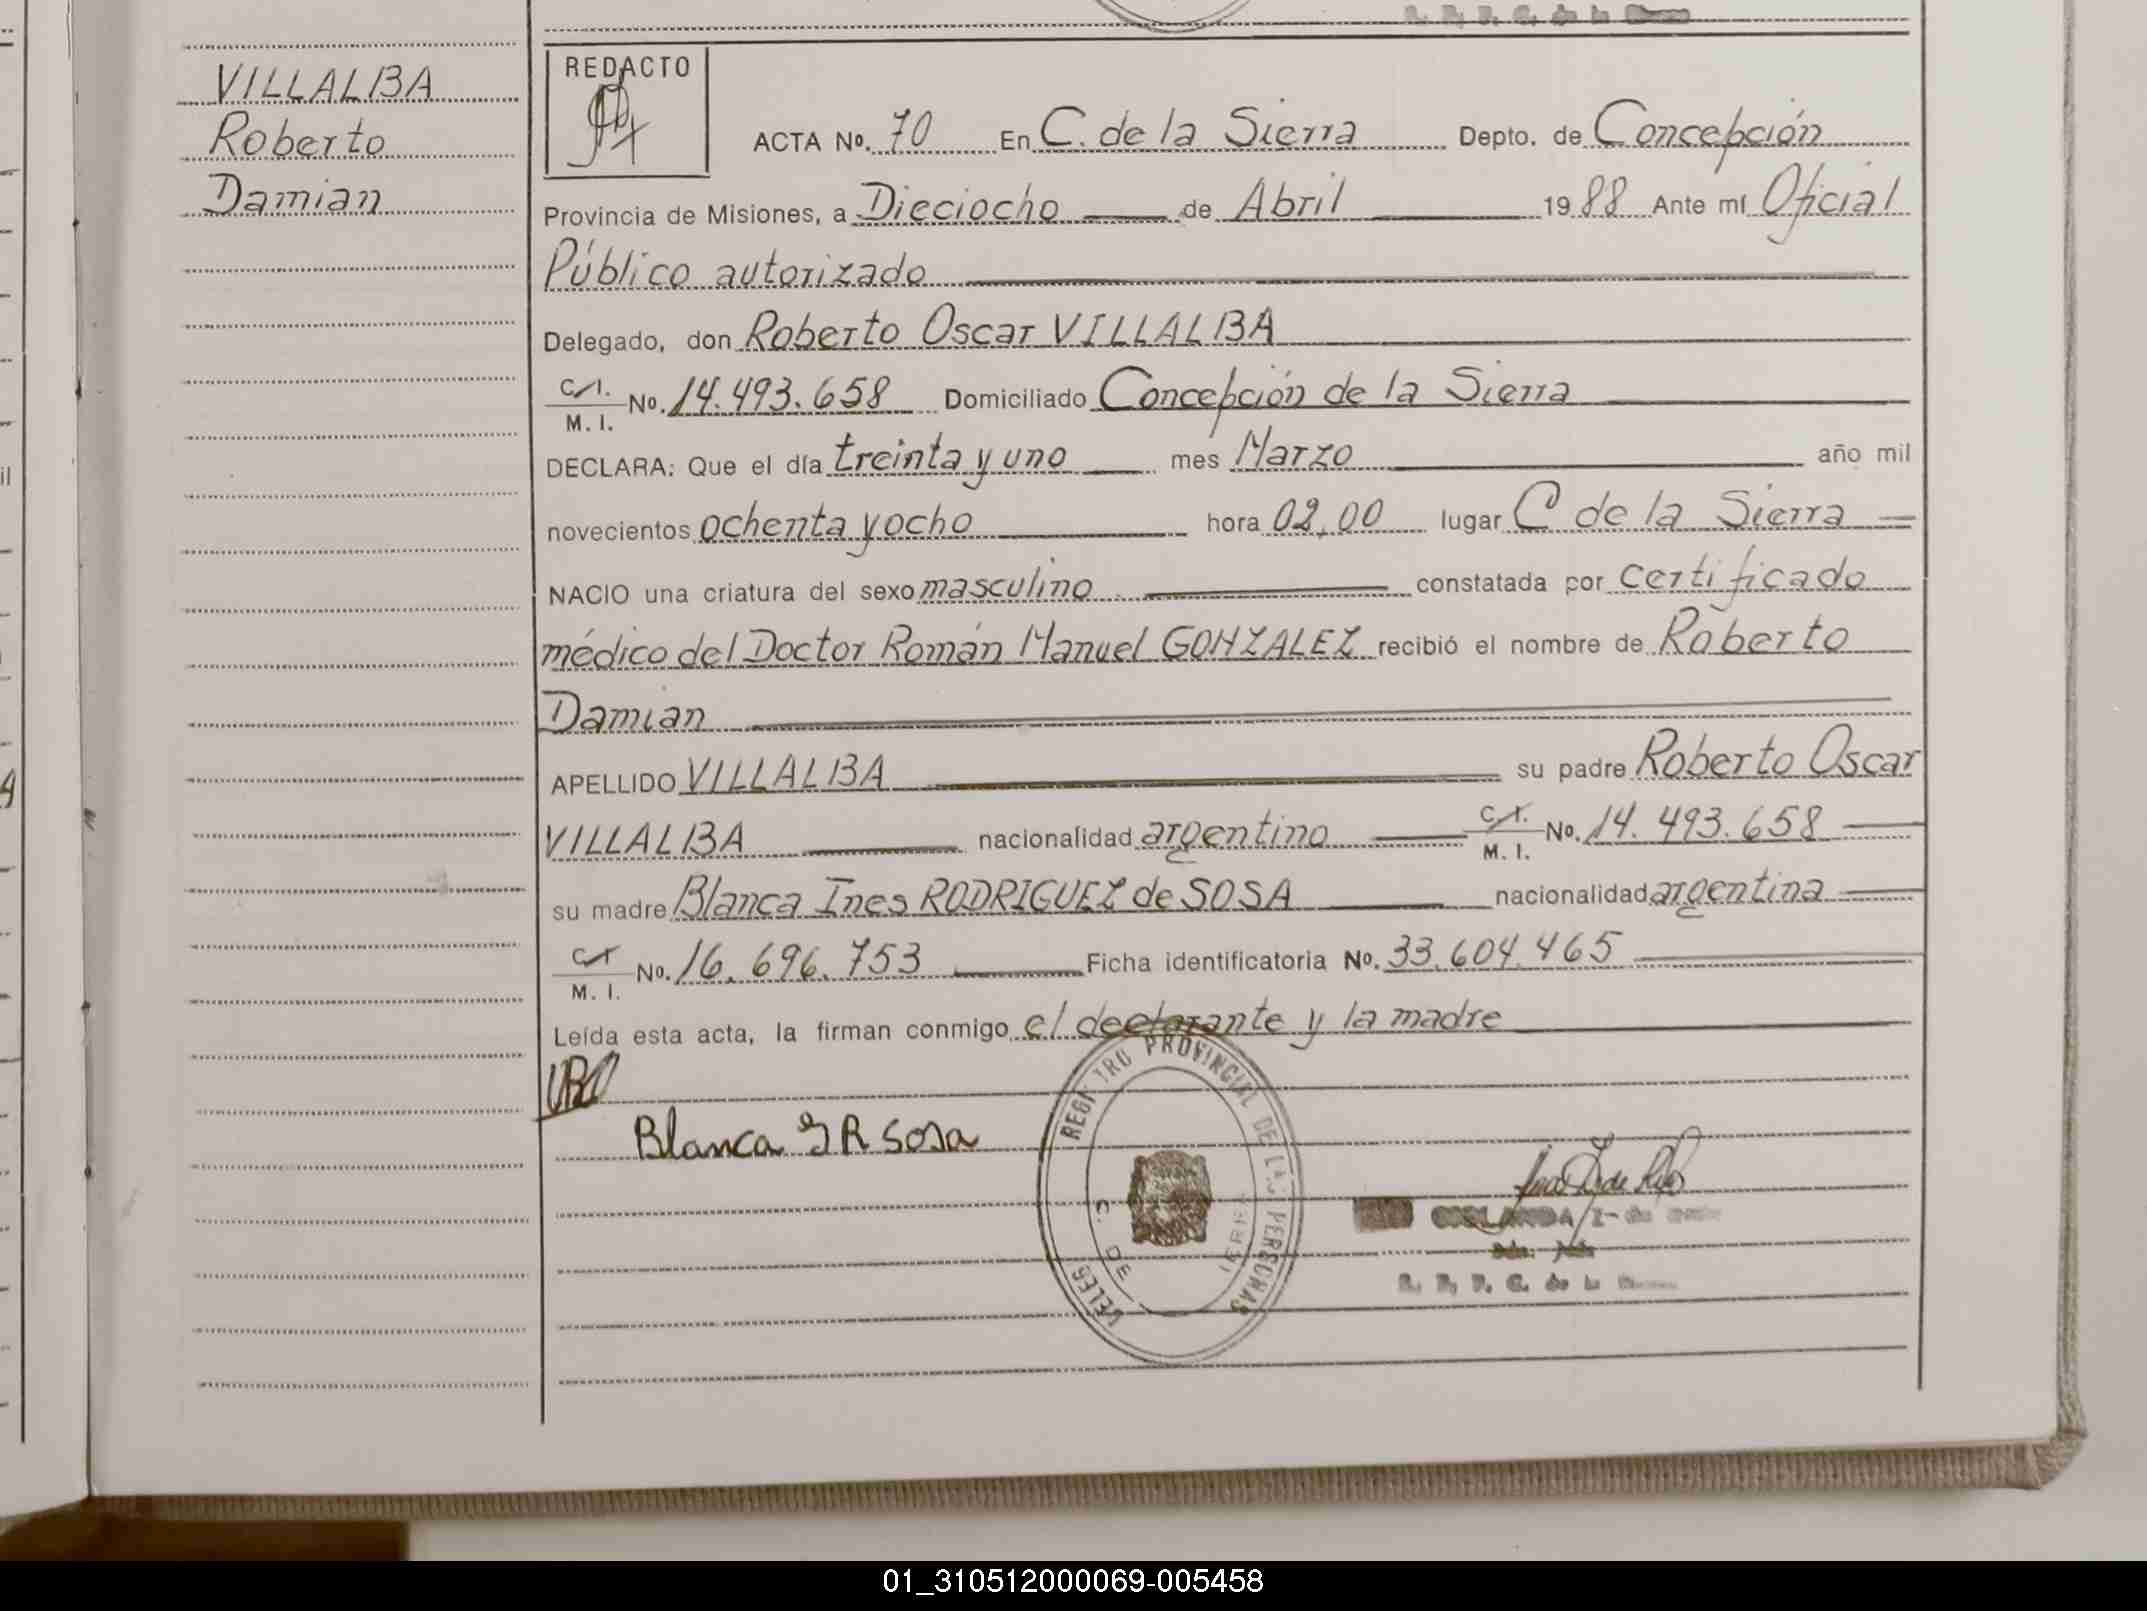 VILLALBA
Roberto
Damian
REDACTO
ACTA No. 70 En C. de la Sierra Depto. de Concepción
Provincia de Misiones, a Dieciocho de Abril 1988 Ante mí Oficial
Público autorizado
Delegado, don Roberto Oscar VILLALBA
C/I. M. I. No. 14.493.658 Domiciliado Concepción de la Sierra
DECLARA: Que el día treinta y uno mes Marzo año mil
novecientos ochenta y ocho hora 02,00 lugar C de la Sierra
NACIO una criatura del sexo masculino constatada por certificado
médico del Doctor Román Manuel GONZALEZ recibió el nombre de Roberto
Damian
APELLIDO VILLALBA su padre Roberto Oscar
VILLALBA nacionalidad argentino C/I. M. I. No. 14.493.658
su madre Blanca Ines RODRIGUEZ de SOSA nacionalidad argentina
C/I M. I. No. 16.696.753 Ficha identificatoria No. 33.604.465
Leída esta acta, la firman conmigo el declarante y la madre
Blanca I R Sosa
REGISTRO PROVINCIAL DE LAS PERSONAS
C. DE
R. P. P. C. de la
01_310512000069-005458